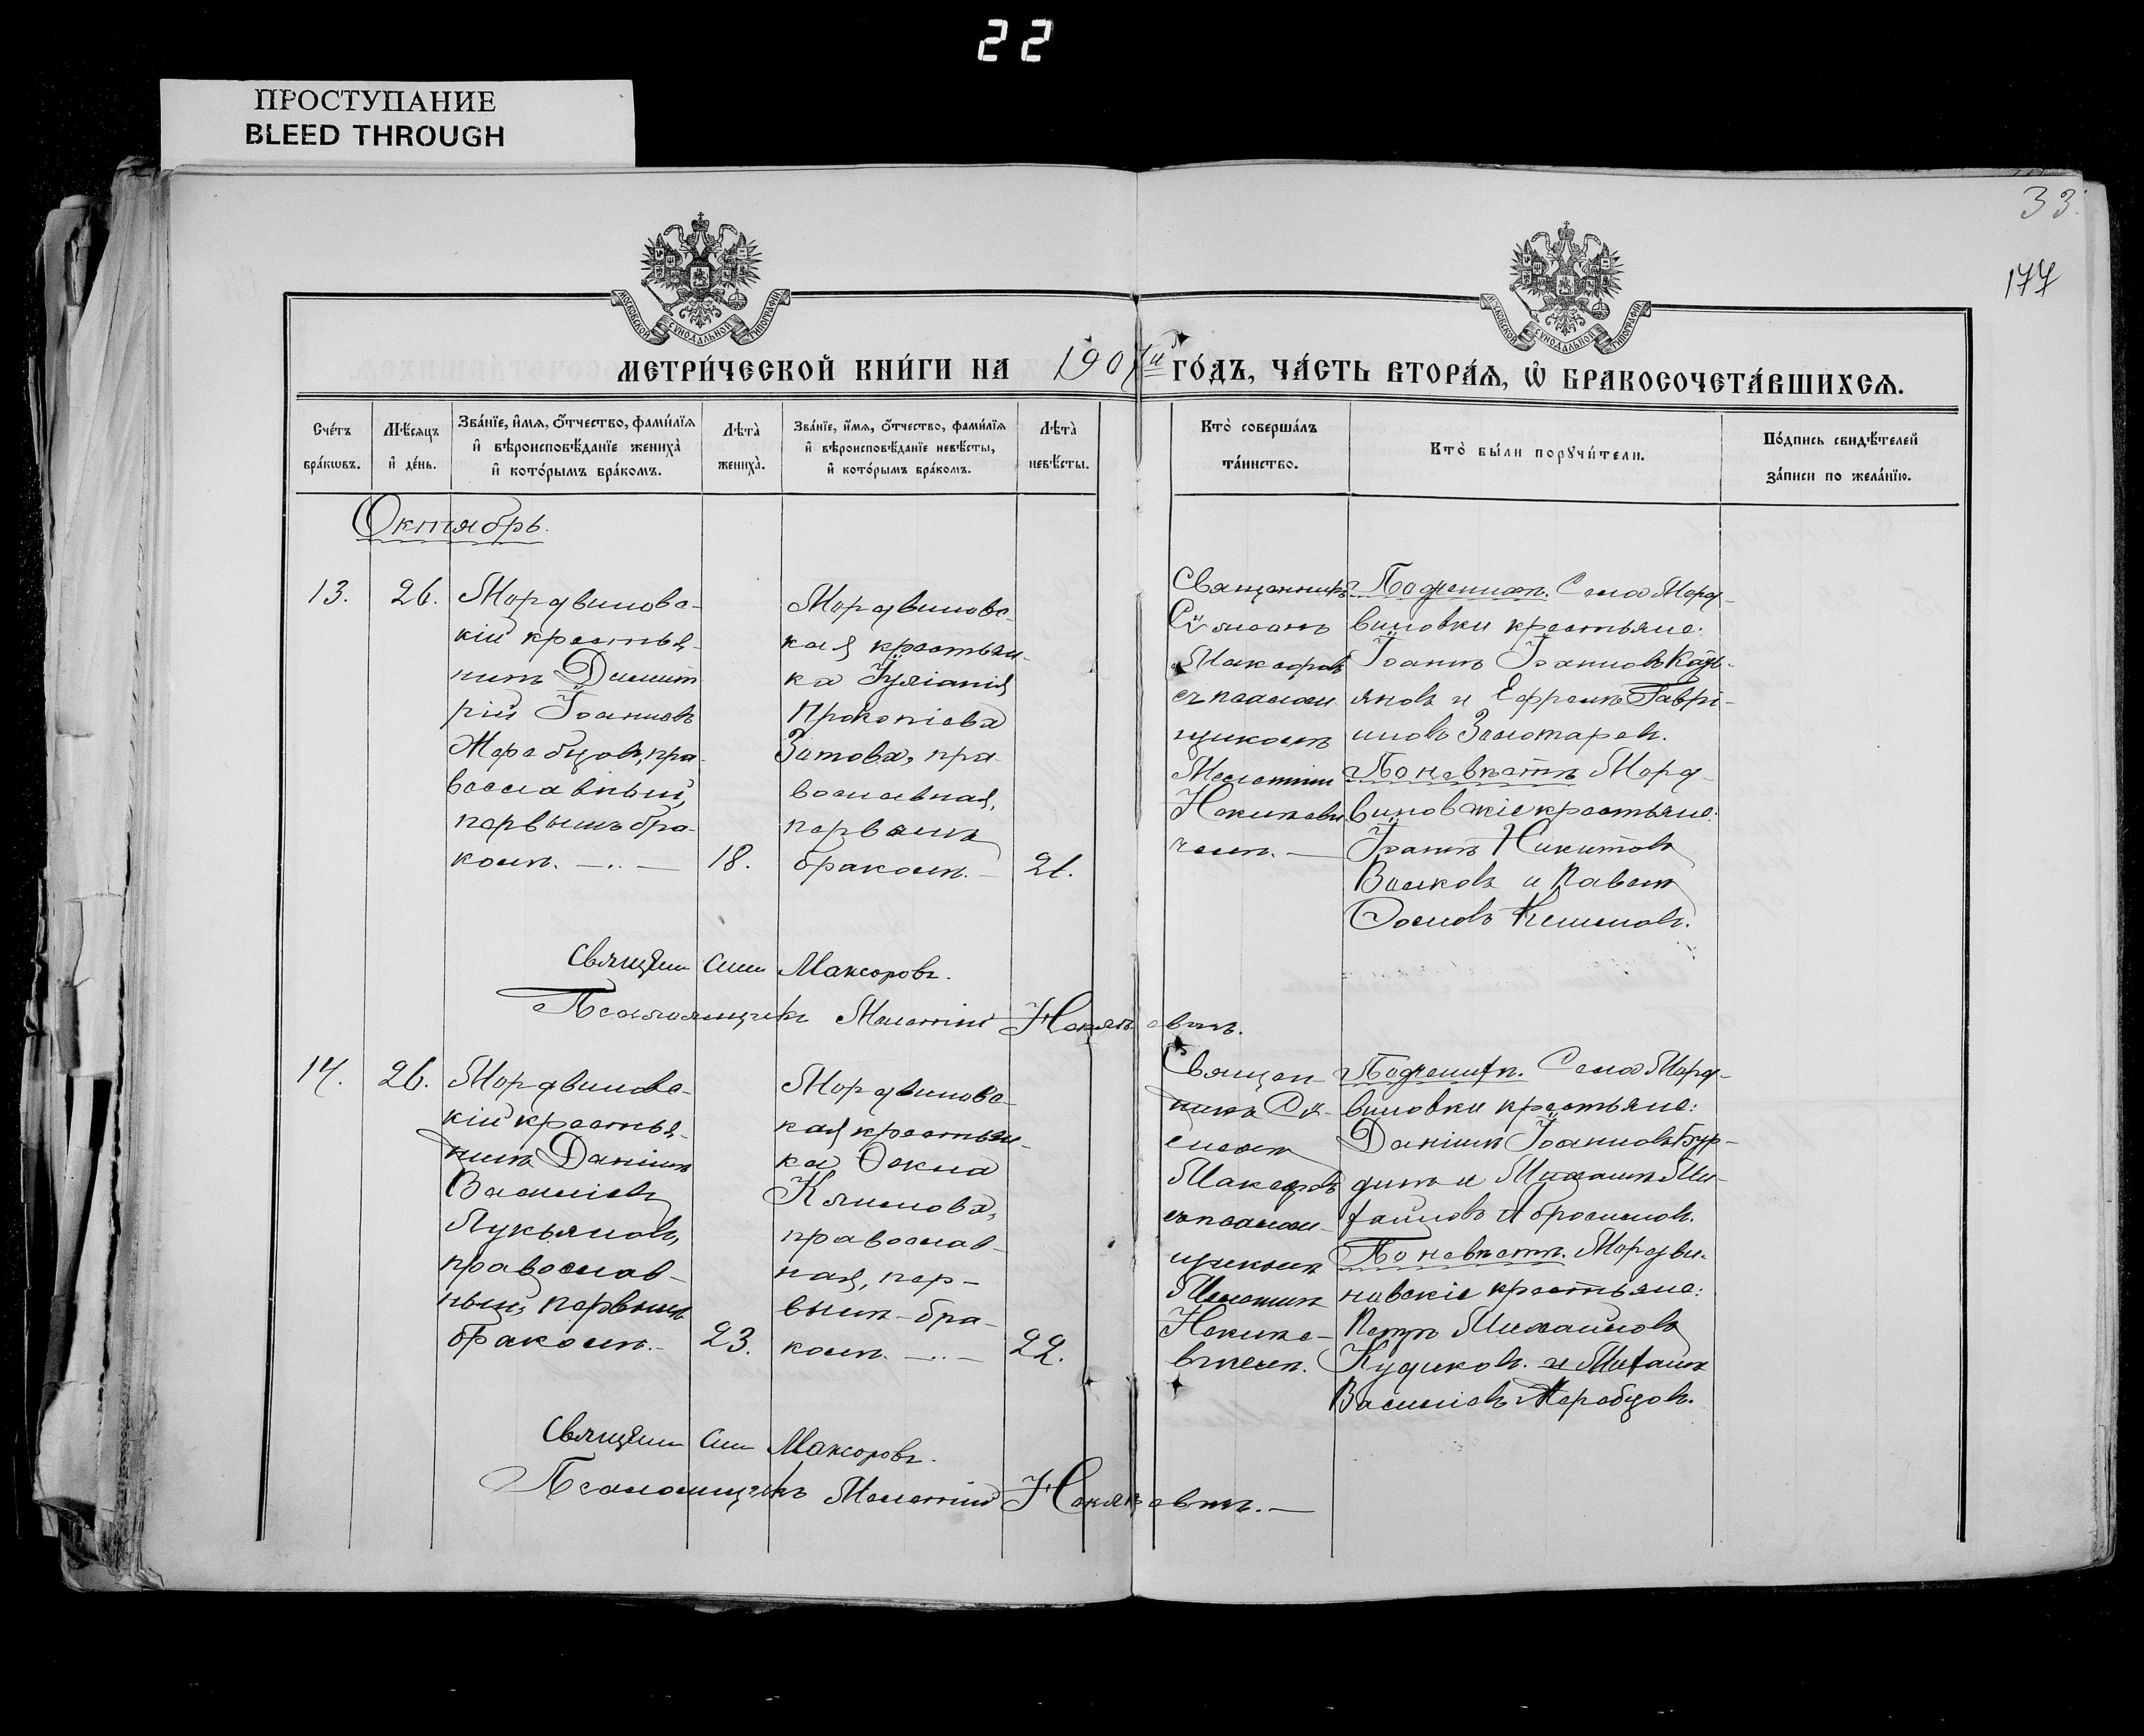 22
ПРОСТУПАНИЕ
BLEED THROUGH
33.
177
МЕТРИ́ЧЕСКОЙ КНИ́ГИ НА 1907й ГО́ДЪ, ЧА́СТЬ ВТОРА́Я, Ѽ БРАКОСОЧЕТА́ВШИХСЯ.
Сче́тъ бра́кѡвъ.
Мѣ́сяцъ и҆ де́нь.
Зва́нїе, и҆́мя, ѻ҆́тчество, фами́лїя и҆ вѣроисповѣ́данїе жениха̀ и҆ кото́рымъ бра́комъ.
Лѣта̀ жениха̀.
Зва́нїе, и҆́мя, ѻ҆́тчество, фами́лїя и҆ вѣроисповѣ́данїе невѣ́сты, и҆ кото́рымъ бра́комъ.
Лѣта̀ невѣ́сты.
Кто̀ соверша́лъ та́инство.
Кто̀ бы́ли порꙋчи́тели.
По́дпись свидѣ́телей за́писи по жела́нїю.
Октябрь.
13.
26.
Мордвиновс-
кій крестья-
нинъ Димит
рій Іоанновъ
Жеребцовъ, пра-
вославный,
первымъ бра-
комъ. —..—
18.
Мордвиновс-
кая крестьян-
ка Іуліанія
Прокопіева
Зотова, пра-
вославная,
первымъ
бракомъ.—
21.
Священникъ
Сүмеонъ
Максоровъ
съ псалом
щикомъ
Мелетіем
веніемъ. —
По женихѣ. Села Морд-
виновки крестьяне:
Іоаннъ Іоанновъ
и Ефремъ Гаврі-
иловъ Золотарев.
По невѣстѣ Морд-
виновскіе крестьяне:
Іоаннъ Никитовъ
Волковъ и Павелъ
Священ Сим Максоровъ.
Псаломщикъ Мелетий
14.
26.
Мордвиновс-
кій крестья-
нинъ Даніилъ
Василіевъ
Лукьяновъ,
православ-
ный, первымъ
бракомъ.—
23.
Мордвиновс-
кая крестьян-
ка Ѳекла
Климова,
православ-
ная, пер-
вымъ бра-
комъ. —..—
22.
Священ-
никъ Сү-
меонъ
Максоровъ
съ псалом-
щикомъ
По женихѣ. Села Морд-
виновки крестьяне:
Даніилъ Іоанновъ Бур-
динъ и Михаилъ Ми-
хаиловъ Абросимов.
По невѣстѣ. Мордви-
новскіе крестьяне:
Петръ Михаиловъ
Кудиковъ. и Михаилъ
Василіевъ Жеребцовъ.
Священ Сим Максоровъ.
Псаломщикъ Мелетий